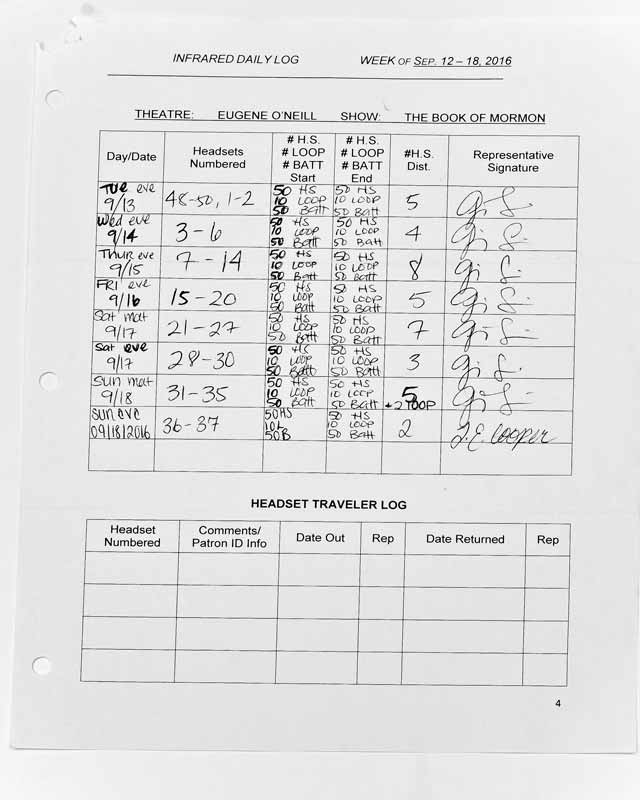 INFRARED DAILY LOG WEEK OF SEP. 12 – 18, 2016
THEATRE: EUGENE O'NEILL SHOW: THE BOOK OF MORMON
Day/Date
Headsets
Numbered
# H.S.
# LOOP
# BATT
Start
# H.S.
# LOOP
# BATT
End
#H.S.
Dist.
Representative
Signature
Tue eve
9/13
48-50, 1-2
50 HS
10 LOOP
50 Batt
50 HS
10 LOOP
50 Batt
5
Wed eve
9/14
3-6
50 HS
10 LOOP
50 Batt
50 HS
10 LOOP
50 Batt
4
Thur eve
9/15
7-14
50 HS
10 LOOP
50 Batt
50 HS
10 LOOP
50 Batt
8
FRI eve
9/16
15-20
50 HS
10 LOOP
50 Batt
50 HS
10 LOOP
50 Batt
5
Sat mat
9/17
21-27
50 HS
10 LOOP
50 Batt
50 HS
10 LOOP
50 Batt
7
Sat eve
9/17
28-30
50 HS
10 LOOP
50 Batt
50 HS
10 LOOP
50 Batt
3
Sun mat
9/18
31-35
50 HS
10 LOOP
50 Batt
50 HS
10 LOOP
50 Batt
5
+2 LOOP
Sun eve
09/18/2016
36-37
50HS
10L
50B
50 HS
10 LOOP
50 Batt
2
J.E. Cooper
HEADSET TRAVELER LOG
Headset
Numbered
Comments/
Patron ID Info
Date Out
Rep
Date Returned
Rep
4